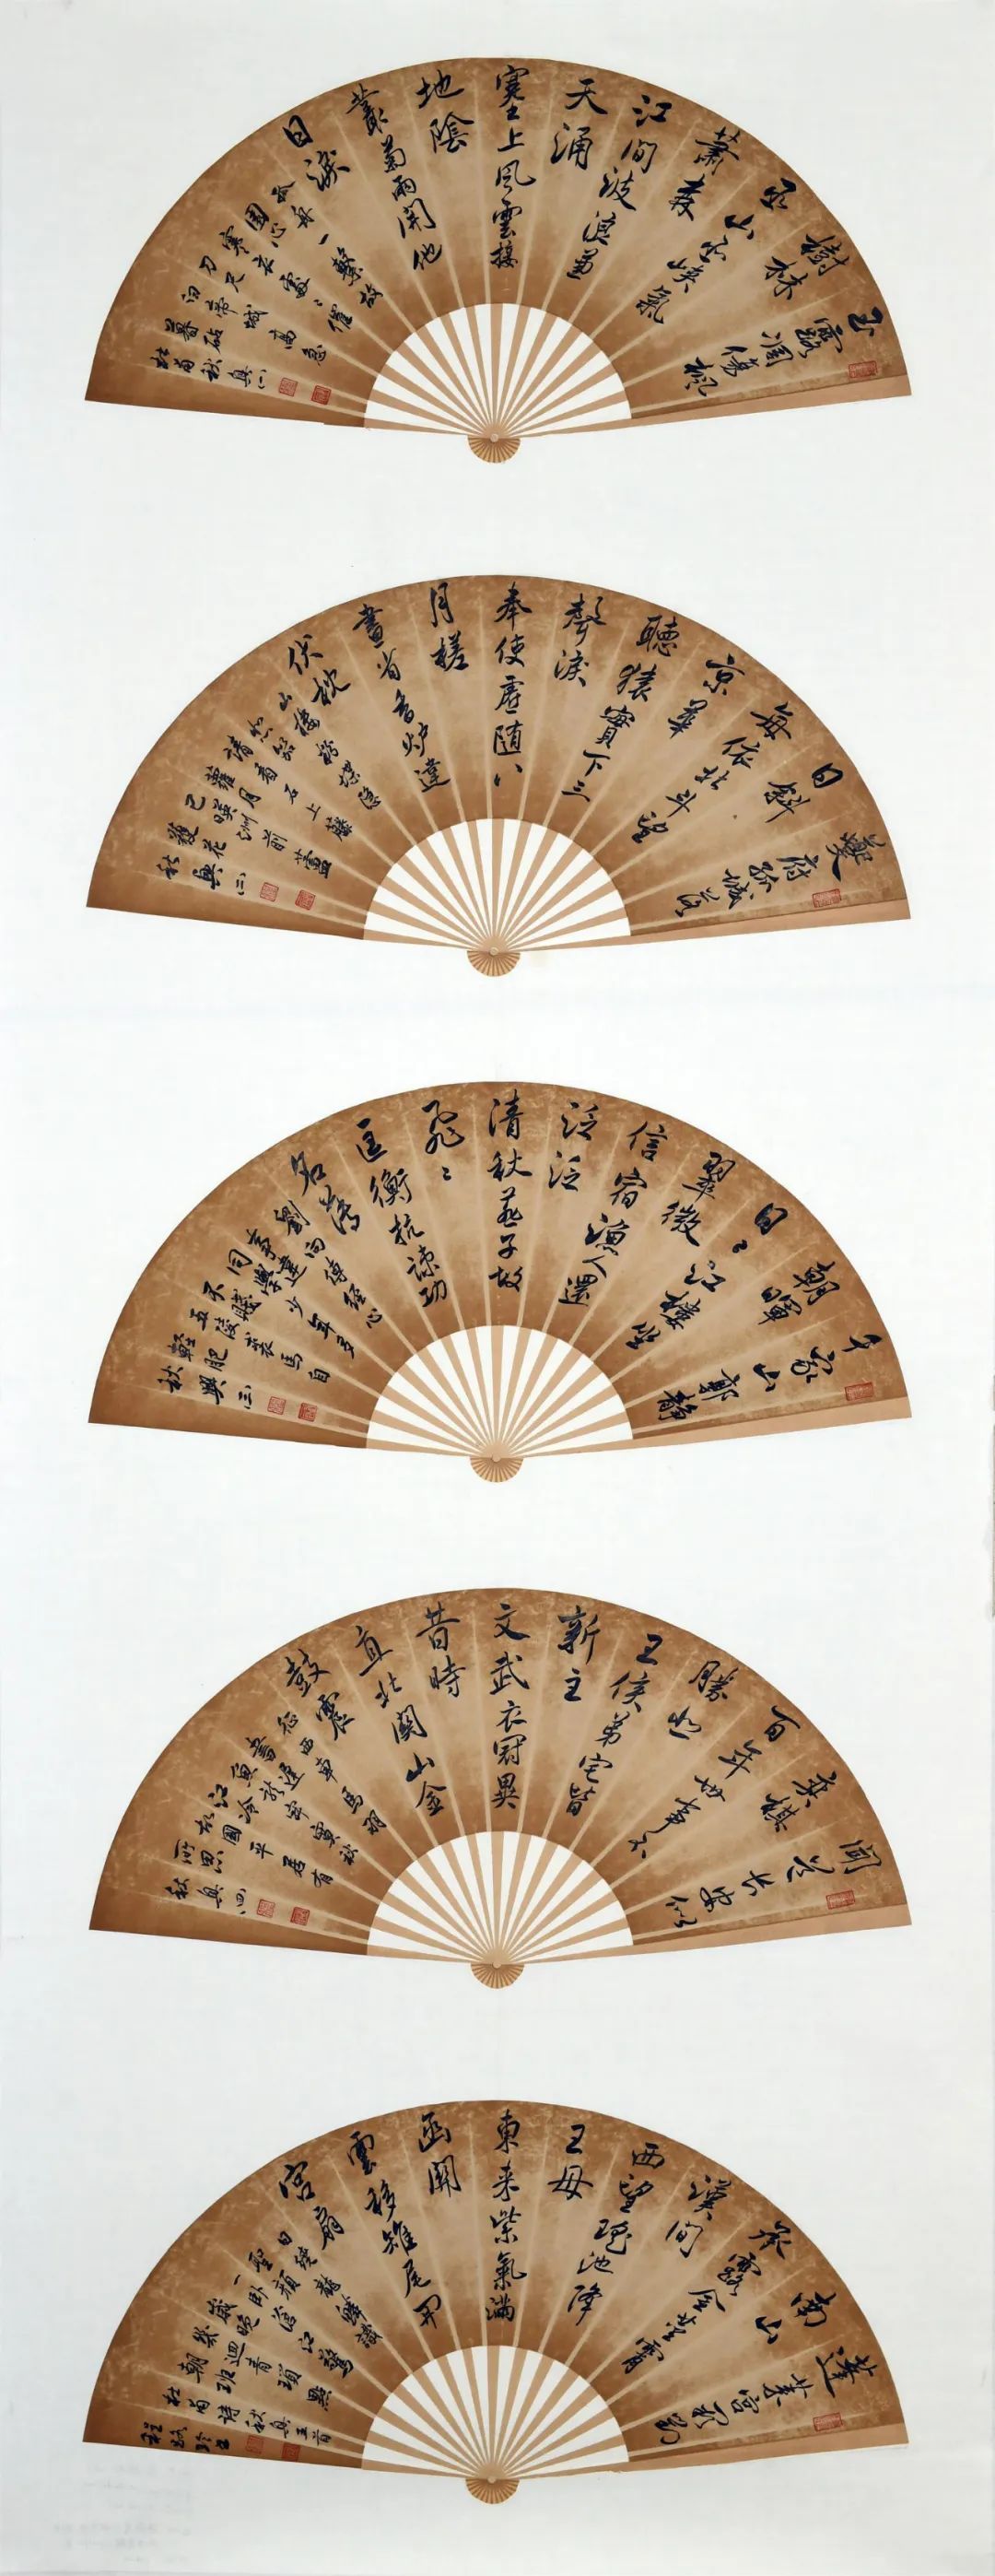 玉露凋傷楓
樹林
巫山巫峽氣
蕭森
江間波浪兼
天涌
塞上風雲接
地陰
叢菊兩開他
日淚
孤舟一繫故
園心
寒衣處〻催
刀尺
白帝城高急
暮砧
杜甫秋興(一)
夔府孤城落
日斜
每依北斗望
京華
聽猿實下三
聲淚
奉使虛隨八
月槎
畫省香爐違
伏枕
山樓粉堞隱
悲笳
請看石上藤
蘿月
已映洲前蘆
荻花
秋興(二)
千家山郭靜
朝暉
日〻江樓坐
翠微
信宿漁人還
泛泛
清秋燕子故
飛〻
匡衡抗疏功
名薄
劉向傳經心
事違
同學少年多
不賤
五陵裘馬自
輕肥
秋興(三)
聞道長安似
弈棋
百年世事不
勝悲
王侯第宅皆
新主
文武衣冠異
昔時
直北關山金
鼓震
征西車馬羽
書遲
魚龍寂寞秋
江冷
故國平居有
所思
秋興(四)
蓬萊宮闕對
南山
承露金莖霄
漢間
西望瑤池降
王母
東來紫氣滿
函關
雲移雉尾開
宮扇
日繞龍鱗識
聖顏
一臥滄江驚
歲晚
幾迴青瑣點
朝班
杜甫詩秋興五首